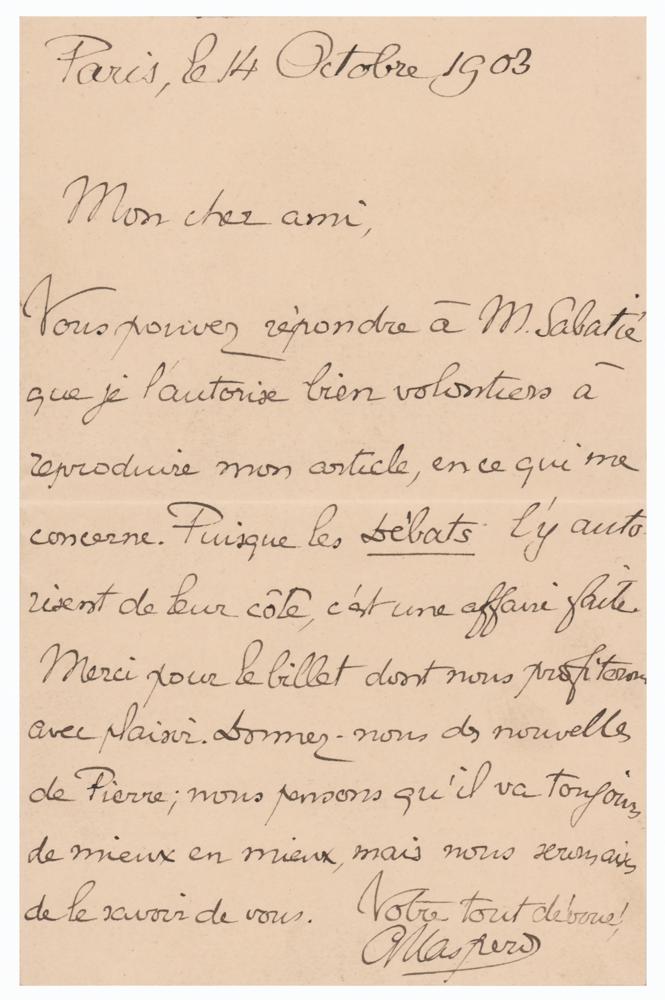 Paris, le 14 Octobre 1903
Mon cher ami,
Vous pouvez répondre à M. Sabatié
que je l'autorise bien volontiers à
reproduire mon article, en ce qui me
concerne. Puisque les Débats l'y auto-
risent de leur côté, c'est une affaire faite.
Merci pour le billet dont nous profiterons
avec plaisir. Donnez-nous des nouvelles
de Pierre; nous pensons qu'il va toujours
de mieux en mieux, mais nous serons aises
de le savoir de vous. Votre tout dévoué,
GMaspero